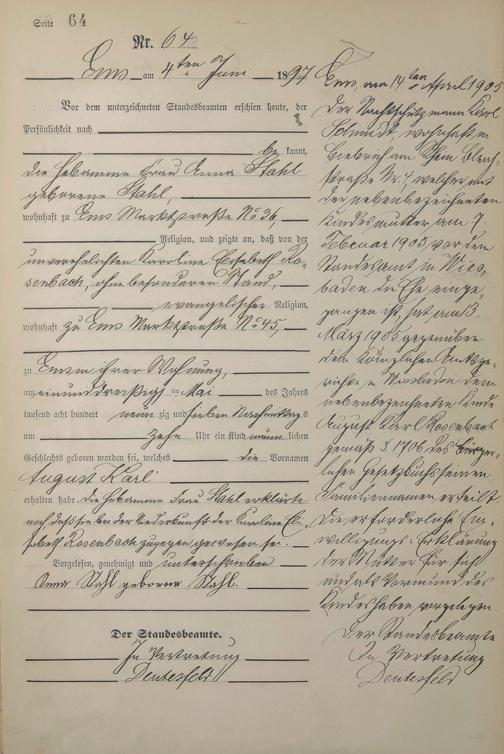 Seite 64
Nr. 64
Ems am 4ten Juni 1897
Vor dem unterzeichneten Standesbeamten erschien heute, der
Persönlichkeit nach
be kannt,
die Hebamme Frau Anna Stahl
geborene Stahl,
wohnhaft zu Ems Marktstraße No 36,
Religion, und zeigte an, daß von der
unverehelichten Karoline Elisabeth Ro-
senbach, ohne besonderen Stand,
evangelischer Religion,
wohnhaft zu Ems Marktstraße No 45,
zu Ems in ihrer Wohnung,
am einunddreißigsten Mai des Jahres
tausend acht hundert neunzig und sieben Nachmittags
um Zehn Uhr ein Kind männlichen
Geschlechts geboren worden sei, welches die Vornamen
August Karl
erhalten habe. Die Hebamme Frau Stahl erklärte
noch, daß sie bei der Niederkunft der Karoline Eli-
sabeth Rosenbach zugegen gewesen sei.
Vorgelesen, genehmigt und unterschrieben
Anna Stahl geborne Stahl.
Der Standesbeamte.
In Vertretung
Ems, am 14ten April 1905
Der Nachtschutzmann Karl
Schmidt, wohnhaft in
Biebrich am Rhein
straße Nr. 4, welcher mit
der nebenbezeichneten
Kindesmutter am 7
Februar 1905 vor dem
Standesamt in Wies-
baden die Ehe einge-
gangen ist, hat am 13.
März 1905 gegenüber
dem Königlichen Amtsge-
richte in Wiesbaden dem
nebenbezeichneten Kinde
August Karl Rosenbach
gemäß § 1706 des bürger-
lichen Gesetzbuchs seinen
Familiennamen erteilt.
Die erforderliche Ein-
willigungs-Erklärung
der Mutter für sich
und als Vormund des
Kindes haben vorgelegen
Der Standesbeamte
In Vertretung